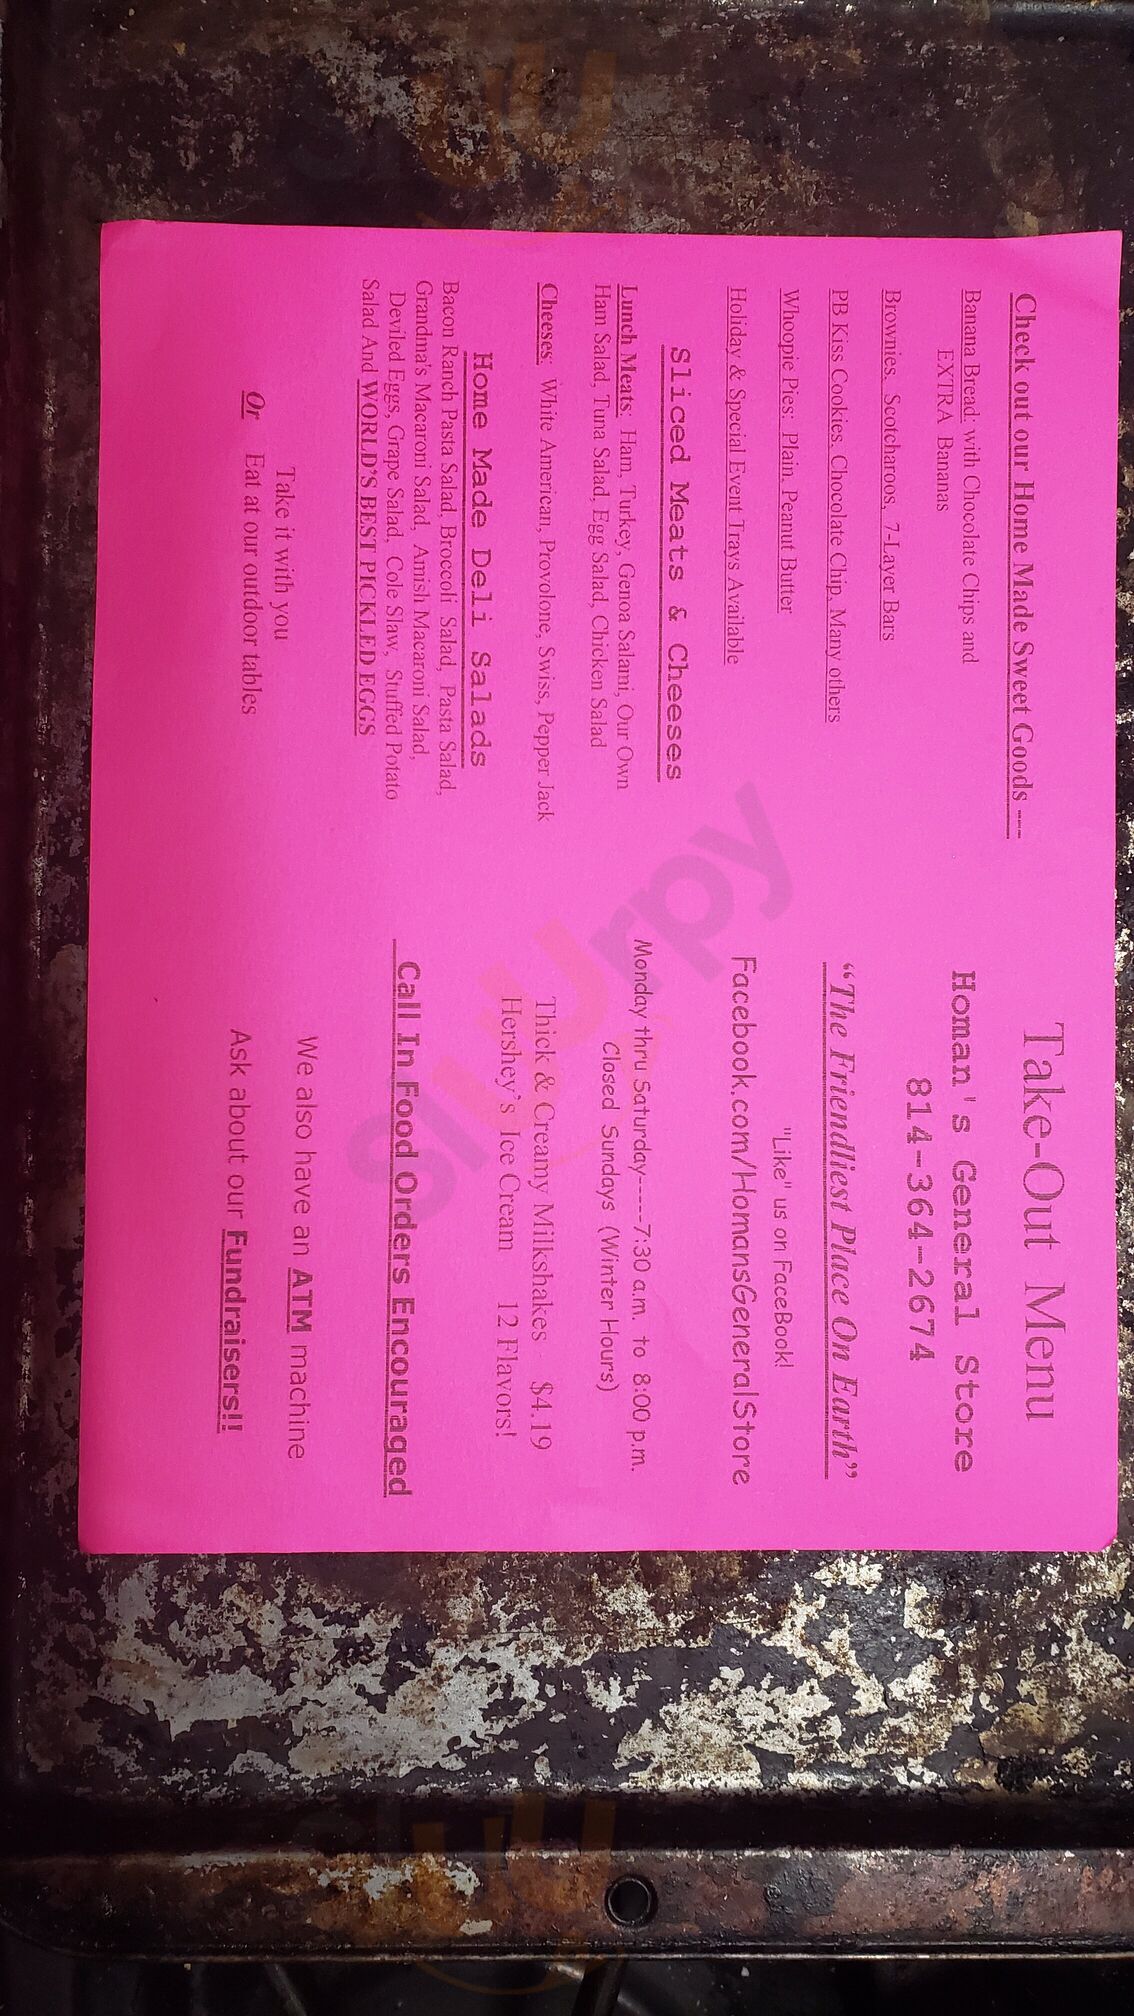 Check out our Home Made Sweet Goods ---
Banana Bread: with Chocolate Chips and
EXTRA Bananas
Brownies, Scotcharoos, 7-Layer Bars
PB Kiss Cookies, Chocolate Chip, Many others
Whoopie Pies: Plain, Peanut Butter
Holiday & Special Event Trays Available
Sliced Meats & Cheeses
Lunch Meats: Ham, Turkey, Genoa Salami, Our Own
Ham Salad, Tuna Salad, Egg Salad, Chicken Salad
Cheeses: White American, Provolone, Swiss, Pepper Jack
Home Made Deli Salads
Bacon Ranch Pasta Salad, Broccoli Salad, Pasta Salad,
Grandma's Macaroni Salad, Amish Macaroni Salad,
Deviled Eggs, Grape Salad, Cole Slaw, Stuffed Potato
Salad And WORLD'S BEST PICKLED EGGS
Take it with you
Or Eat at our outdoor tables
Take-Out Menu
Homan's General Store
814-364-2674
"The Friendliest Place On Earth"
"Like" us on FaceBook!
Facebook.com/HomansGeneralStore
Monday thru Saturday-----7:30 a.m. to 8:00 p.m.
Closed Sundays (Winter Hours)
Thick & Creamy Milkshakes $4.19
Hershey's Ice Cream 12 Flavors!
Call In Food Orders Encouraged
We also have an ATM machine
Ask about our Fundraisers!!
slurpy